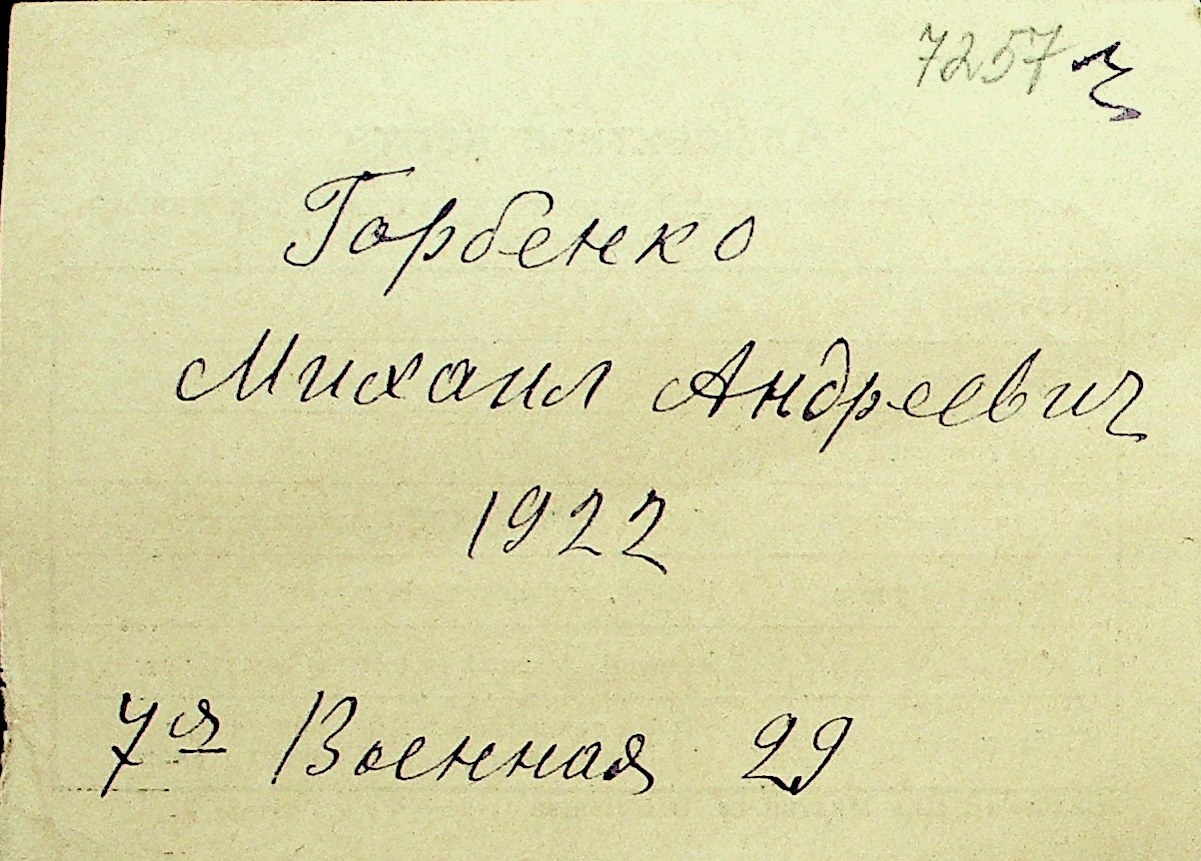 7257
Горбенко
Михаил Андреевич
1922
7я Военная 29